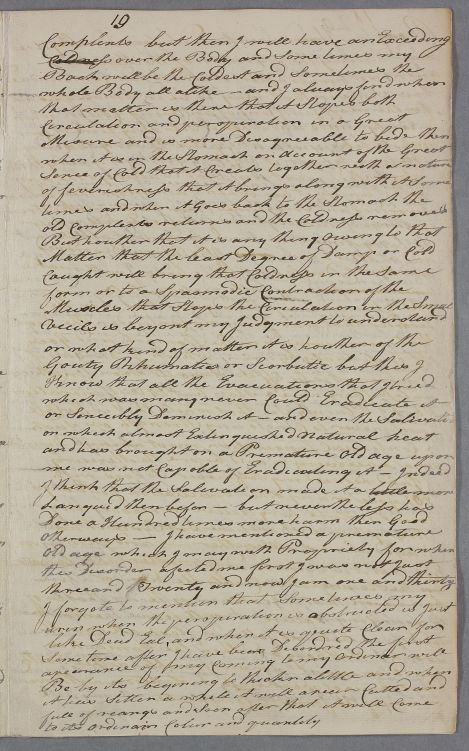 19
Complents but then I will have an Exceeding
Coldness over the Body and Some times my
Back will be the Coldest and Sometimes the
whole Body all alike – and I always find when
that matter is there that it Stopes both
Circulation and perspiration in a Great
Mesure and is more Disagreeable to bide then
when it is in the Stomach on account of the Great
Sence of Cold that it Creats together with a nature
of feverishness that it brings along with it Some
times and when it Goes back to the Stomach the
old Complents returns and the Coldness removes
But whither that it is any thing owing to that
Matter that the least Degree of Damp or Cold
Caught will bring that Coldness in the Same
form or to a Spasmodic Contraction of the
Muscles that Stops the Circulation in the Small
Vecils is beyont my Judgment to understand
or what kind of matter it is whither of the
Gouty Rhumatic or Scorbutic but this I
know that all the Evacuations that I tried
which was many never Coud Eradicate it
or Sencebly Deminish it – and even the Salivati
on which almost Extinguished Natural heat
and has brought on a Premature Old age upon
me was not Capable of Eradicating it – Indeed
I think that the Salivation made it a little more
Languid then befor – but never the less has
Done a Hundred times more harm then Good
otherways – I have mentioned a premature
Old age which I may with Propriety for when
this Disorder afected me first I was not Just
three and Twenty and now I am one and thirty
I forgote to mention that Some times my
urin when the perspiration is abstructed is Just
like Deid Eal, and when it is quite Clear for
Some time after I have been Disordred the first
apearance of my Coming to my Ordiner will
Be by its begining to thicken alittle and when
it has Sitten a while it will apear Cutted and
full of and soon after that it will Come
to its Ordinair Colur and quantity